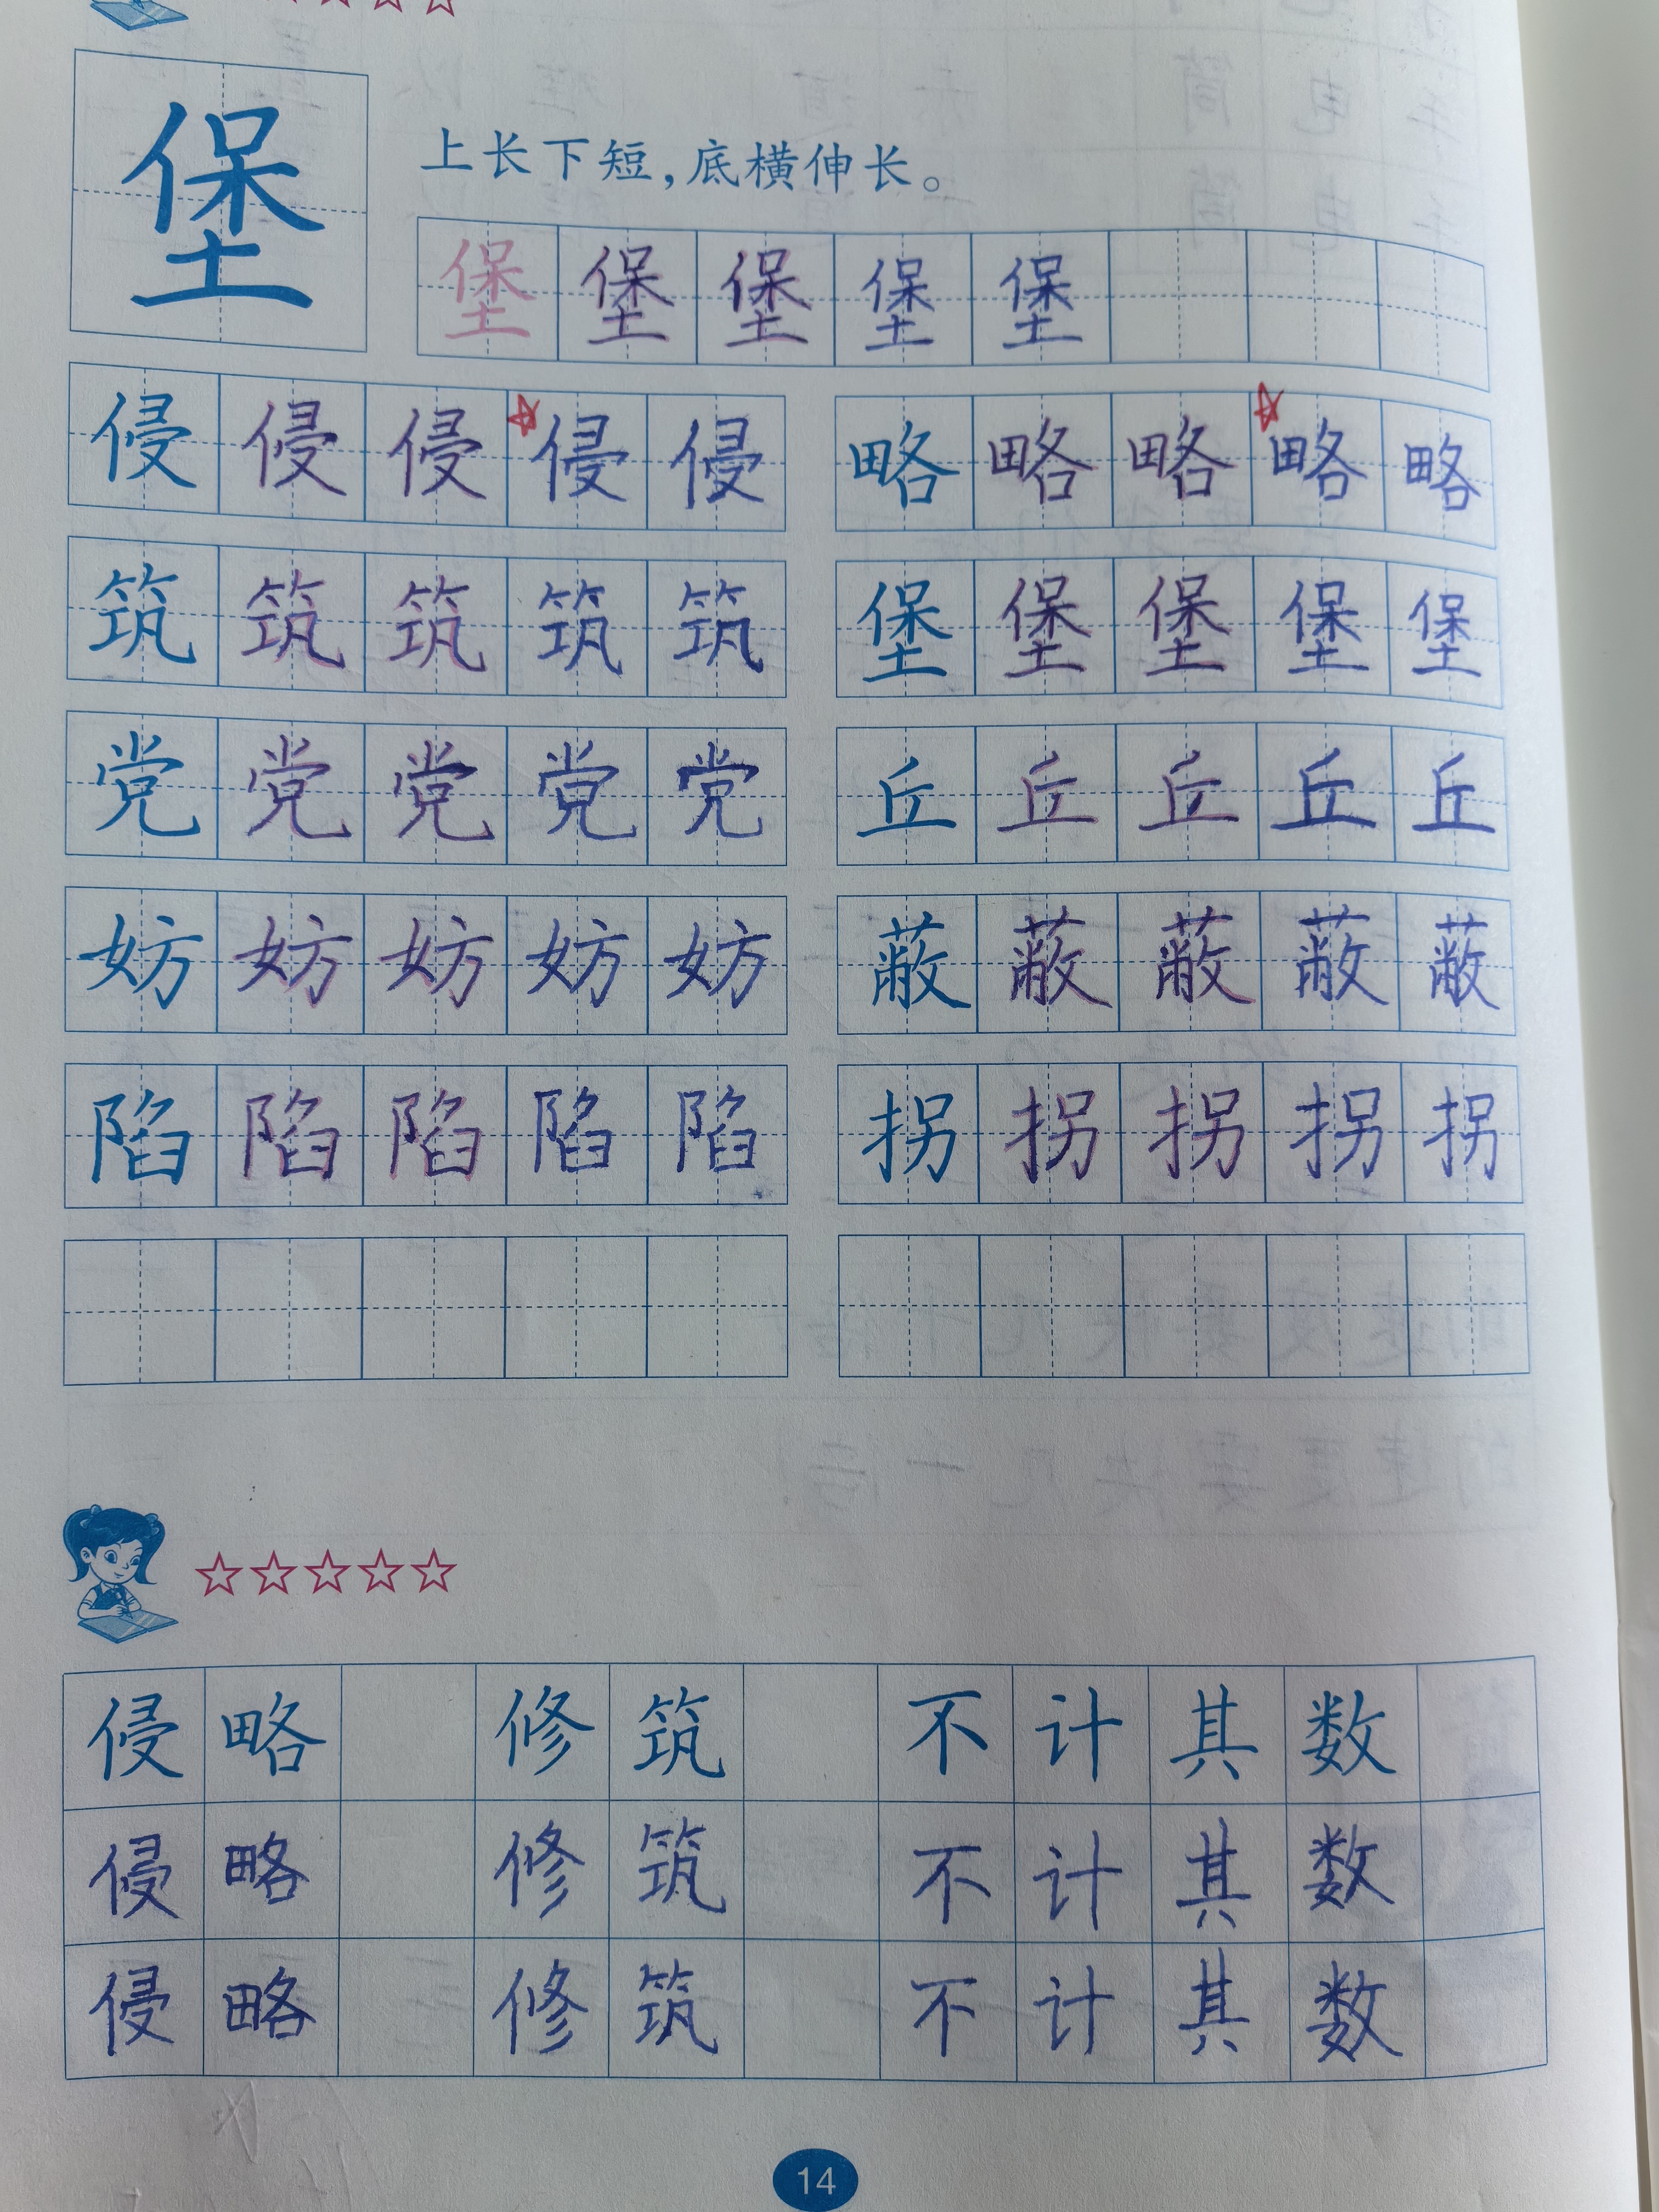 堡
上长下短，底横伸长。
堡堡堡堡堡
侵侵侵侵侵 略略略略略
筑筑筑筑筑 堡堡堡堡堡
党党党党党 丘丘丘丘丘
妨妨妨妨妨 蔽蔽蔽蔽蔽
陷陷陷陷陷 拐拐拐拐拐
侵略 修筑 不计其数
侵略 修筑 不计其数
侵略 修筑 不计其数
14